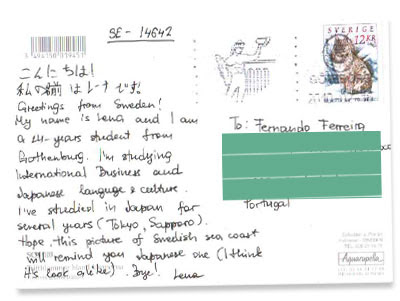 SE - 14642
こんにちは!
私の名前はレナです!
Greetings from Sweden!
My name is Lena and I am
a 24-years student from
Gothenburg. I'm studying
International Business and
Japanese language & culture.
I've studied in Japan for
several years (Tokyo, Sapporo).
Hope this picture of Swedish sea coast
will remind you Japanese one (I think
it's look alike). Bye! Lena
SVERIGE
12 KR
To: Fernando Ferreira
Portugal
Aquarapolla